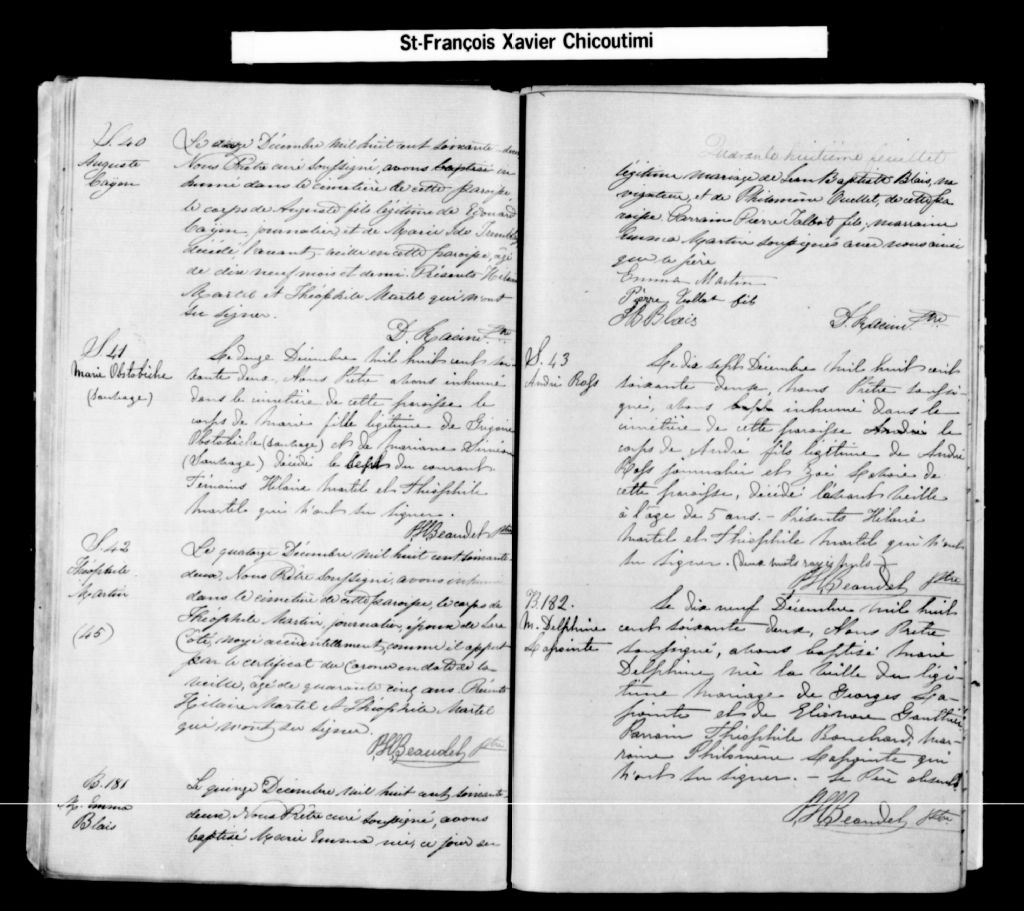 St-François Xavier Chicoutimi
S. 40
Auguste
Cayen
Le onze Décembre mil huit cent soixante-deux
Nous Prêtre curé soussigné, avons baptisé in
humé dans le cimetière de cette paroisse
le corps de Auguste fils légitime de Edouard
Cayen, journalier et de Marie Ida Tremblay
décédé l'avant veille en cette paroisse, agé
de dix neuf mois et demi. Présents Hilaire
Martel et Théophile Martel qui n'ont
su signer.
D. Racine Ptre
S. 41
Marie Obstobiche
(Sauvage)
Le douze Décembre mil huit cent soi
xante deux, Nous Prêtre avons inhumé
dans le cimetière de cette paroisse le
corps de Marie fille légitime de Grégoire
Obstobiche (Sauvage) et de Marianne Siméon
(Sauvage) décédé le sept du courant
Témoins Hilaire Martel et Théophile
Martel qui n'ont su signer.
Beaudet Ptre
S. 42
Théophile
Martin
(45)
Le quatorze Décembre mil huit cent soixante-
deux, Nous Prêtre soussigné, avons inhumé
dans le cimetière de cette paroisse, le corps de
Théophile Martin, journalier, époux de
Côté, noyé accidentellement, comme il appert
par le certificat du Corone en date de la
veille, agé de quarante cinq ans. Présents
Hilaire Martel et Théophile Martel
qui n'ont su signer.
Beaudet Ptre
B. 181
M. Emma
Blais
Le quinze Décembre mil huit cent soixante
deux, Nous Prêtre curé soussigné, avons
baptisé Marie Emma née, ce jour du
Quarante huitième feuillet
légitime mariage de Jean Baptiste Blais, na
vigateur, et de Philomène Ouellet, de cette pa
roisse. Parrain Pierre Talbot fils, marraine
Emma Martin soussignés avec nous ainsi
que le père
Emma Martin
Pierre Talbot fils
JB Blais
D. Racine Ptre
S. 43
André Ross
Le dix sept Décembre mil huit cent
soixante deux, nous Prêtre soussi-
gné, avons bapt inhumé dans le
cimetière de cette paroisse André le
corps de André fils légitime de André
Ross journalier et Zoé de
cette paroisse, décédé l'avant veille
à l'age de 5 ans. - Présents Hilaire
Martel et Théophile Martel qui n'ont
su signer. (deux mots rayés nuls)
Beaudet Ptre
B. 182.
M. Delphine
Lapointe
Le dix neuf Décembre mil huit
cent soixante deux, Nous Prêtre
soussigné, avons baptisé Marie
Delphine née la veille du légi-
time mariage de Georges La-
pointe et de Eléonore Gauthier.
Parrain Théophile Bouchard, mar-
raine Philomène Lapointe qui
n'ont su signer. - Le Père absent
Beaudet Ptre